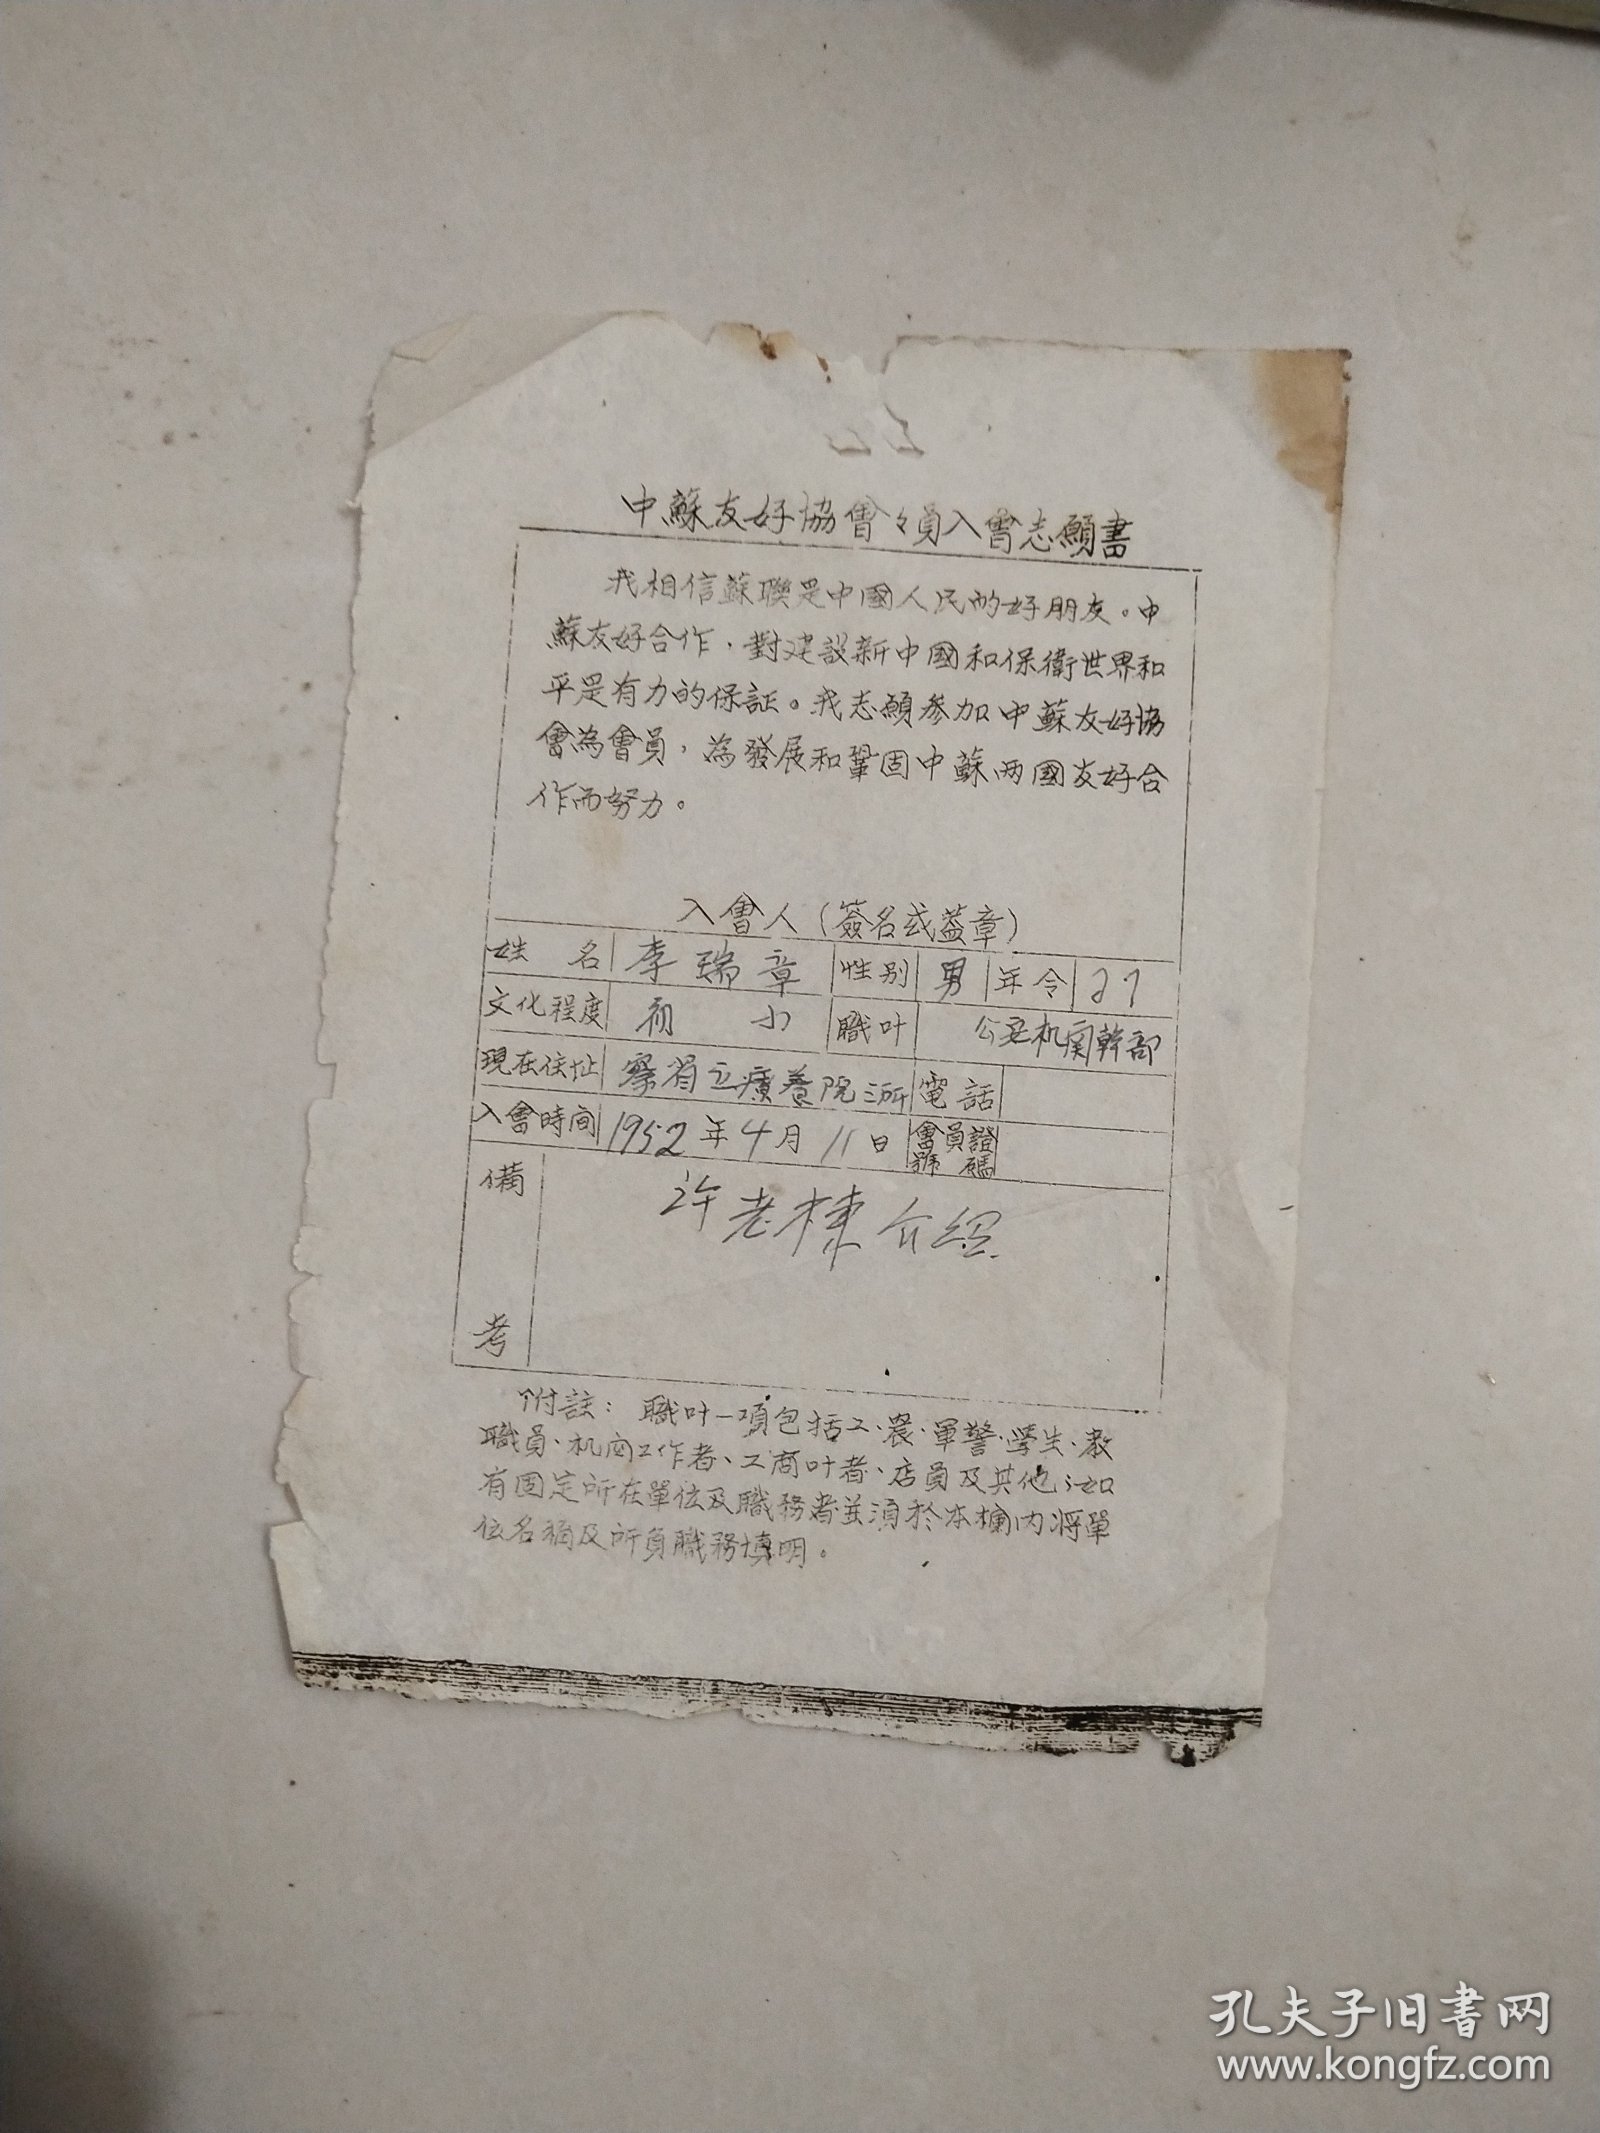 中蘇友好協會々員入會志願書
我相信蘇聯是中國人民的好朋友。中
蘇友好合作，對建設新中國和保衛世界和
平是有力的保証。我志願參加中蘇友好協
會為會員，為發展和鞏固中蘇两國友好合
作而努力。
入會人（簽名或蓋章）
姓 名 李瑞章 性别 男 年令 27
文化程度 初 小 職叶 公安机関幹部
現在住址 察省立療養院三所 電話
入會時间 1952年4月11日 會員證號碼
備考 許老棟介紹
附註：職叶一項包括工、農、軍警、學生、教
職員、机関工作者、工商叶者、店員及其他；如
有固定所在單位及職務者並須於本欄内将單
位名稱及所負職務填明。
孔夫子旧書网
www.kongfz.com